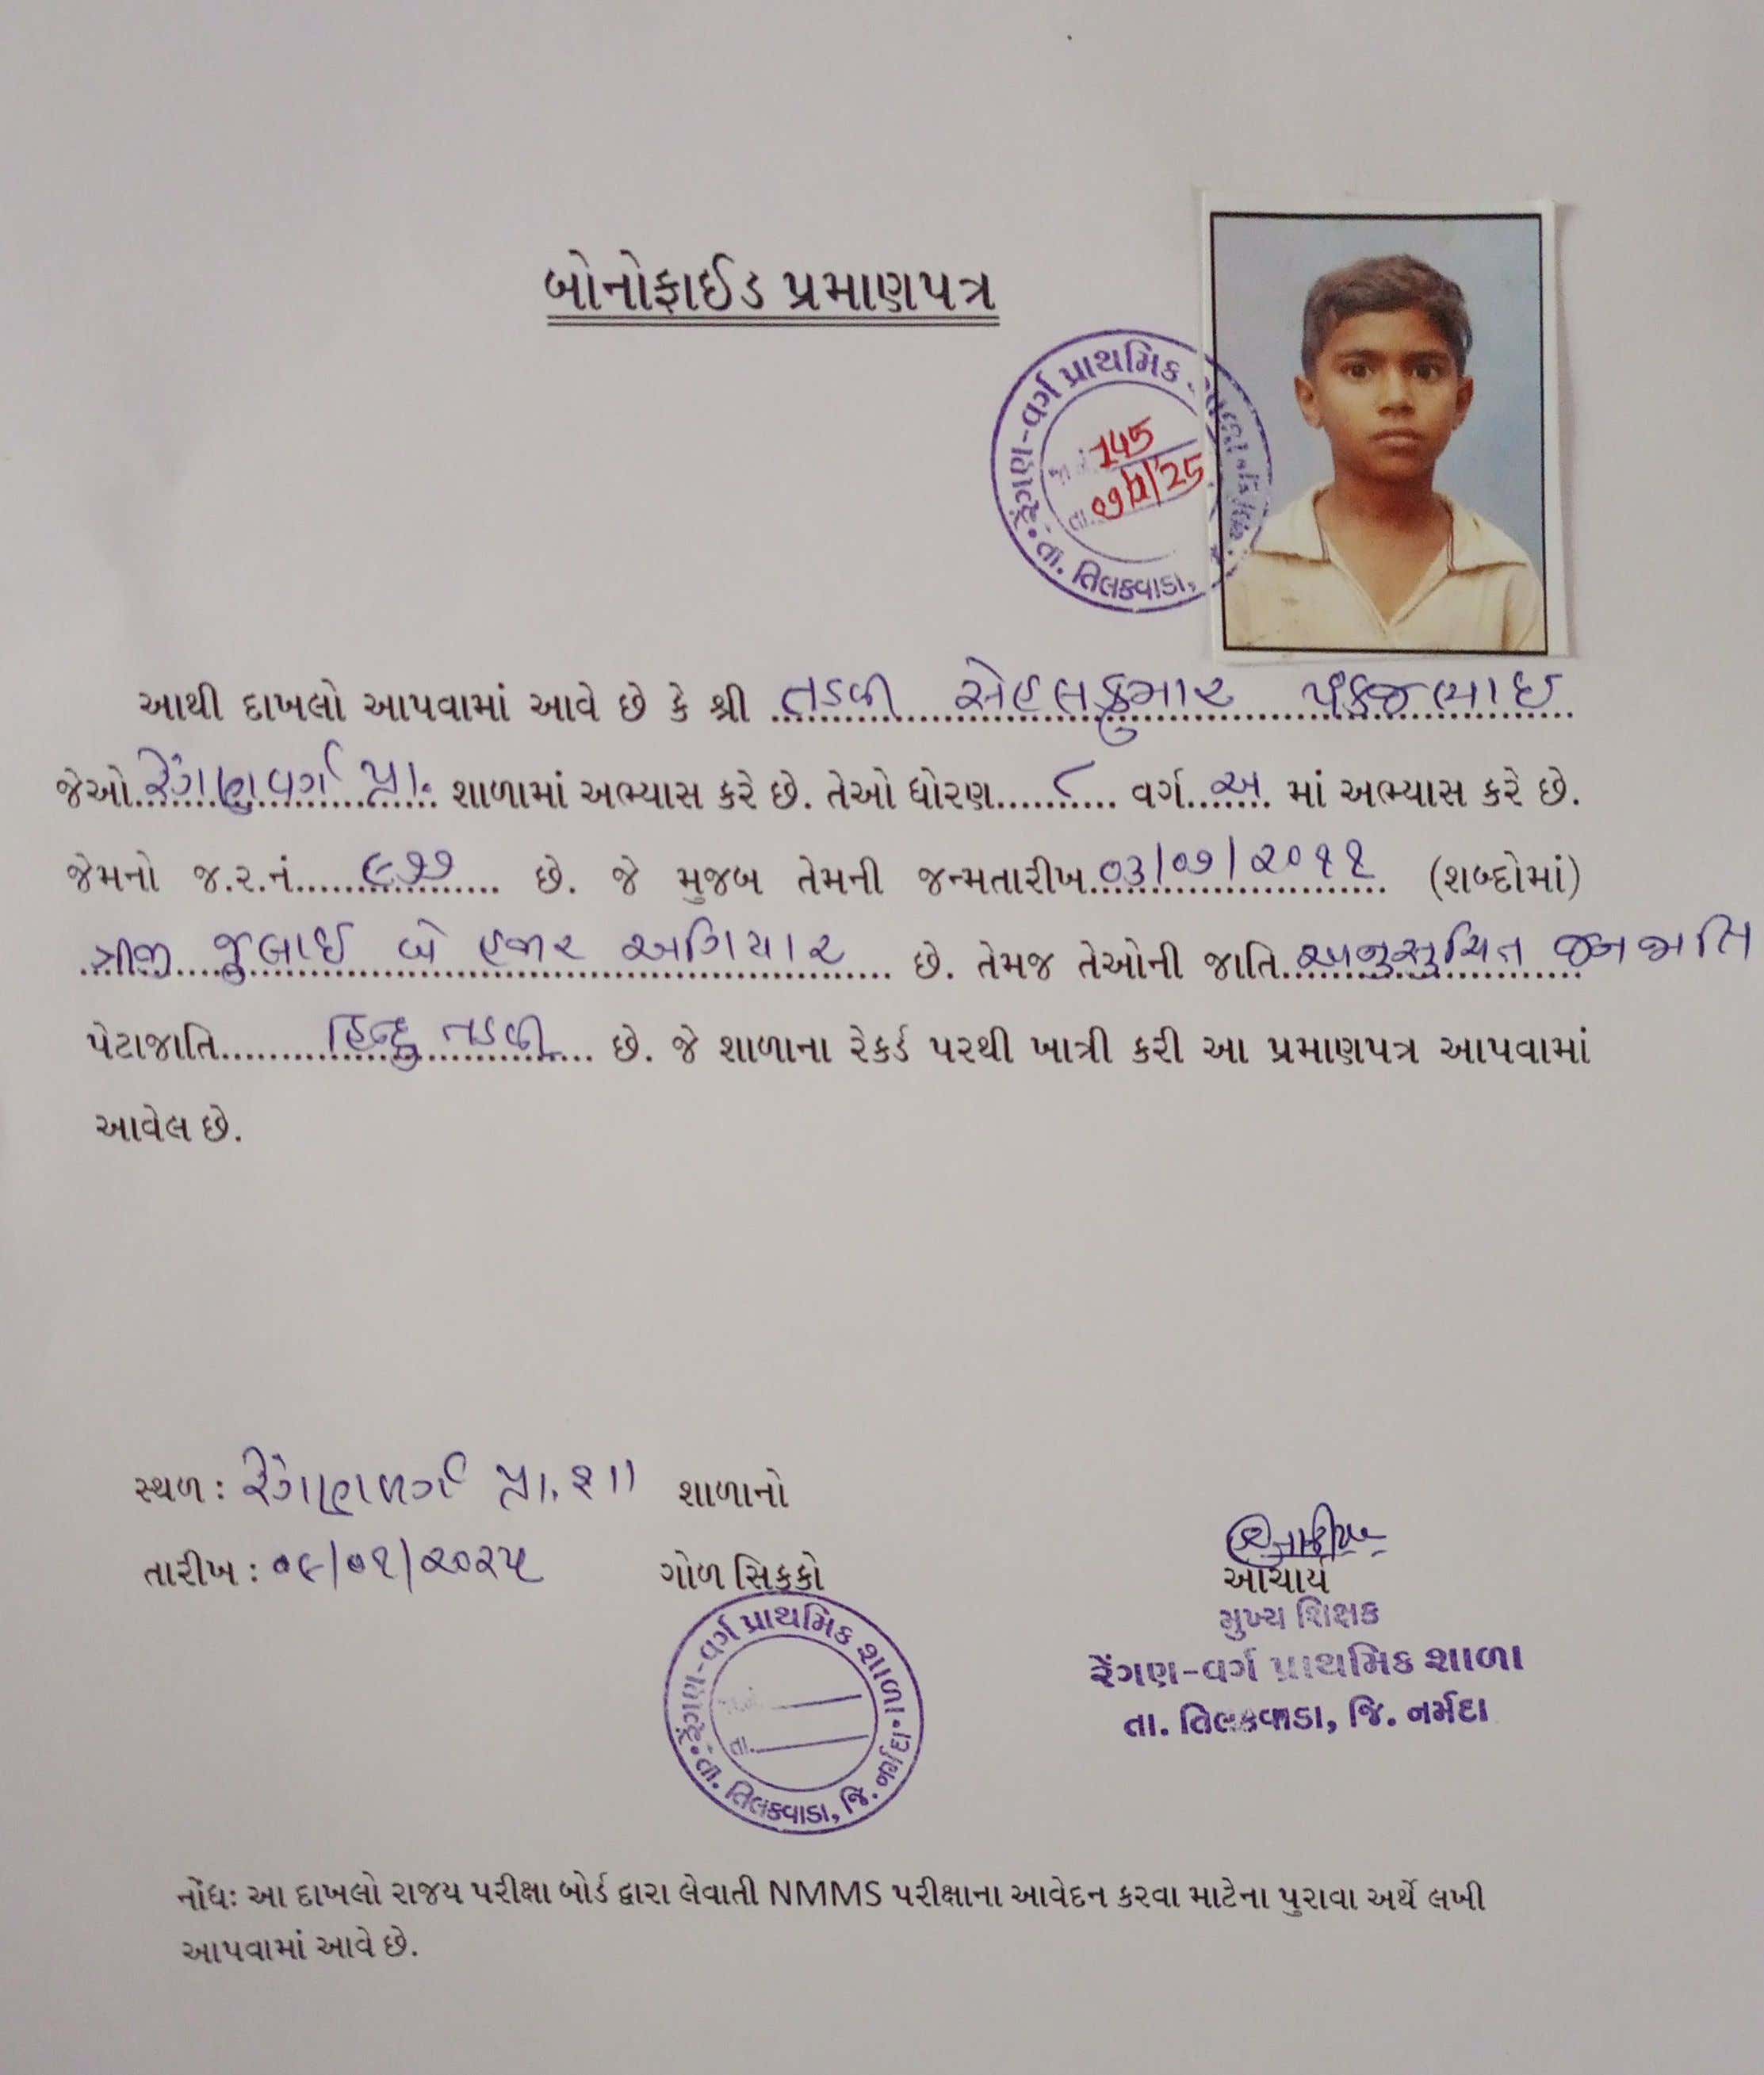 બોનોફાઈડ પ્રમાણપત્ર
રેંગણ-વર્ગ પ્રાથમિક
તા. તિલકવાડા,
145
તા.
આથી દાખલો આપવામાં આવે છે કે શ્રી તડવી સ્નેહલકુમાર પંકજભાઈ
જેઓ રેંગણવર્ગ પ્રા. શાળામાં અભ્યાસ કરે છે. તેઓ ધોરણ ૮ વર્ગ અ માં અભ્યાસ કરે છે.
જેમનો જ.ર.નં. ૯૭૭ છે. જે મુજબ તેમની જન્મતારીખ ૦૩/૦૭/૨૦૧૧ (શબ્દોમાં)
ત્રીજી જુલાઈ બે હજાર અગિયાર છે. તેમજ તેઓની જાતિ અનુસુચિત જનજાતિ
પેટાજાતિ હિન્દુ તડવી છે. જે શાળાના રેકર્ડ પરથી ખાત્રી કરી આ પ્રમાણપત્ર આપવામાં
આવેલ છે.
સ્થળ : રેંગણવર્ગ પ્રા. શા શાળાનો
તારીખ : ૦૯/૦૧/૨૦૨૫ ગોળ સિક્કો
આચાર્ય
મુખ્ય શિક્ષક
રેંગણ-વર્ગ પ્રાથમિક શાળા
તા. તિલકવાડા, જિ. નર્મદા
રેંગણ-વર્ગ પ્રાથમિક શાળા
તા. તિલકવાડા, જિ. નર્મદા
તા.
નોંધઃ આ દાખલો રાજ્ય પરીક્ષા બોર્ડ દ્વારા લેવાતી NMMS પરીક્ષાના આવેદન કરવા માટેના પુરાવા અર્થે લખી
આપવામાં આવે છે.